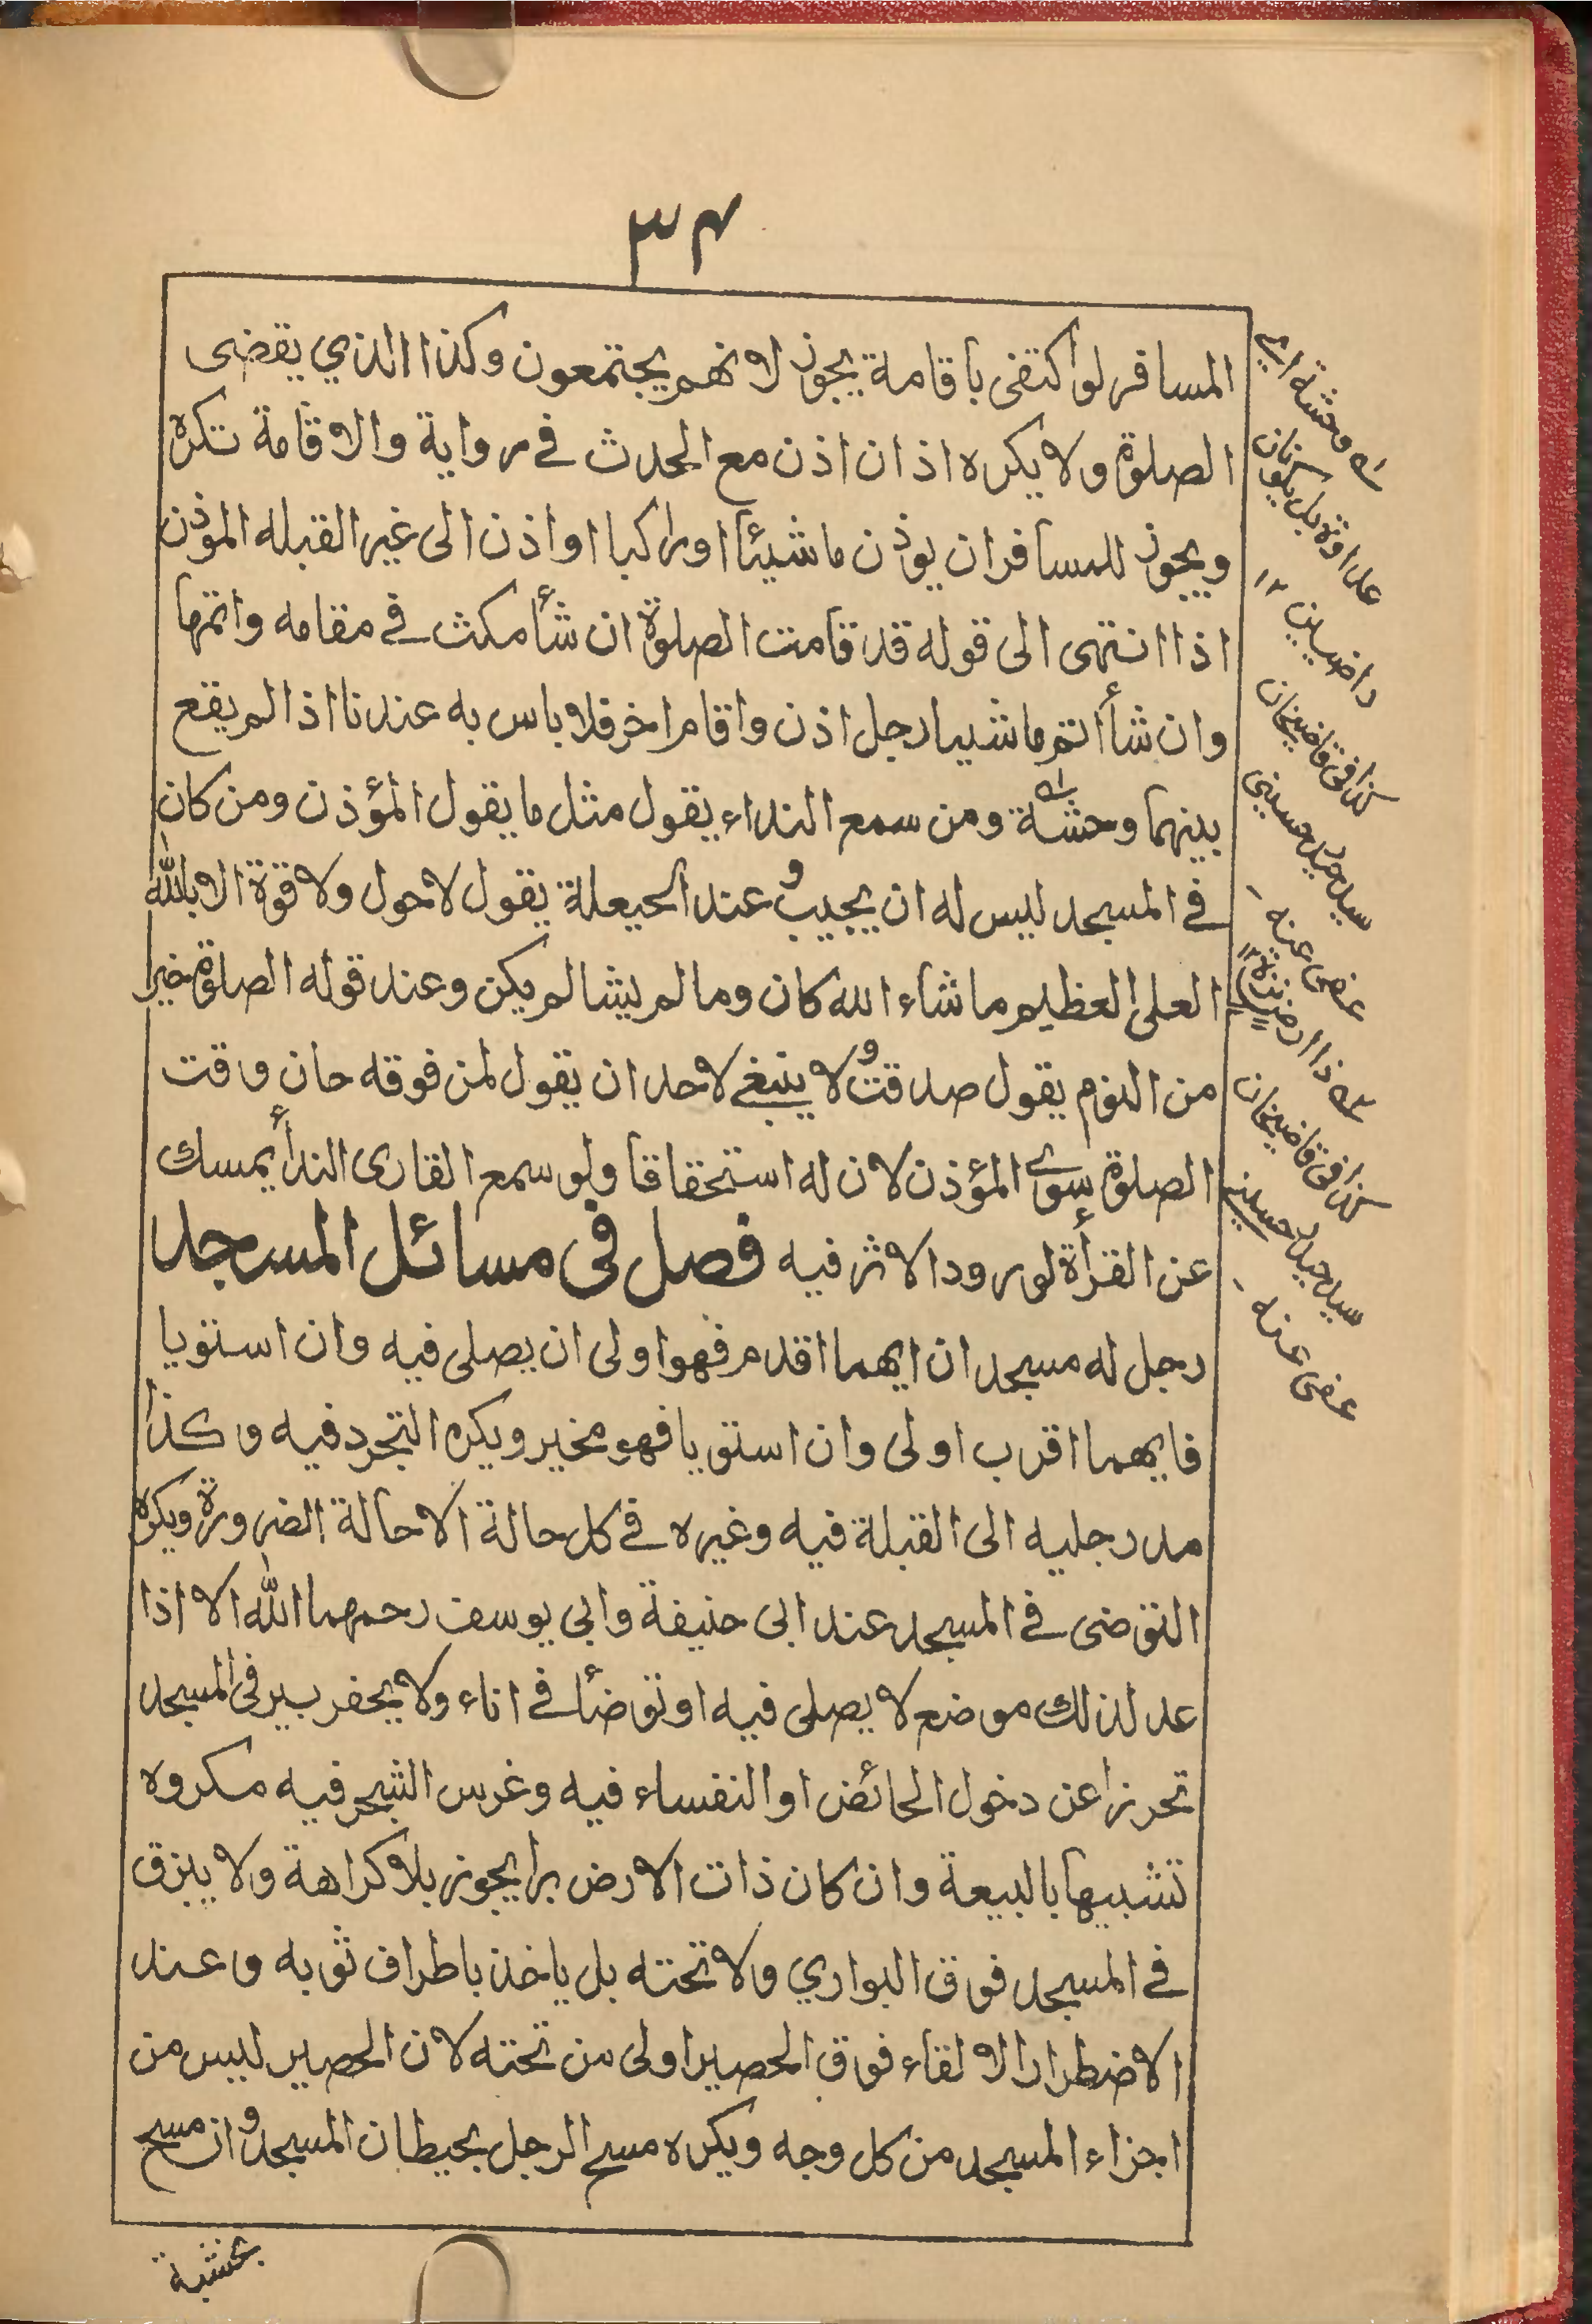 ٣٤
المسافر لو اكتفى باقامة يجوز لانهم يجتمعون وكذا الذي يقضى
الصلوة ولا يكره اذان اذن مع الحدث في رواية والاقامة تكره
ويجوز للمسافر ان يوذن ماشيئا اوراكبا او اذن الى غير القبله الموذن
اذا انتهى الى قوله قد قامت الصلوة ان شأ مكث في مقامه واتمها
وان شأ اتم ماشيا رجل اذن واقام اخر فلا باس به عندنا اذا لم يقع
بينهما وحشة ومن سمع النداء يقول مثل ما يقول المؤذن ومن كان
في المسجد ليس له ان يجيب و عند الحيعلة يقول لاحول ولا قوة الا بالله
العلى العظيم ما شاء الله كان وما لم يشا لم يكن وعند قوله الصلوة خير
من النوم يقول صدقت و لا ينبغي لاحد ان يقول لمن فوقه حان وقت
الصلوة سوى المؤذن لان له استحقاقا ولو سمع القارى الندأ يمسك
عن القرأة لورود الاثر فيه فصل فى مسائل المسجد
رجل له مسجد ان ايهما اقدم فهو اولى ان يصلى فيه وان استويا
فايهما اقرب اولى وان استويا فهو مخير ويكره التجرد فيه وكذا
مد رجليه الى القبلة فيه وغيره في كل حالة الا حالة الضرورة ويكره
التوضى في المسجد عند ابى حنيفة وابي يوسف رحمهما الله الا اذا
عد لذلك موضع لا يصلى فيه او توضأ في اناء ولا يحفر بير في المسجد
تحرزا عن دخول الحائض او النفساء فيه وغرس الشجر فيه مكروه
تشبيها بالبيعة وان كان ذات الارض برا يجوز بلا كراهة ولا يبزق
في المسجد فوق البواري ولا تحته بل ياخذ باطراف ثوبه وعند
الاضطرار الالقاء فوق الحصير اولى من تحته لان الحصير ليس من
اجزاء المسجد من كل وجه ويكره مسح الرجل بحيطان المسجد و ان مسح
بخشبة
له وحشة اي
عداوة بل يكونان
راضيين ١٢
كذا فى قاضيخان
سيد حيدر حسينى
عفى عنه
كذا فى قاضيخان
سيد حيدر حسينى
عفى عنه